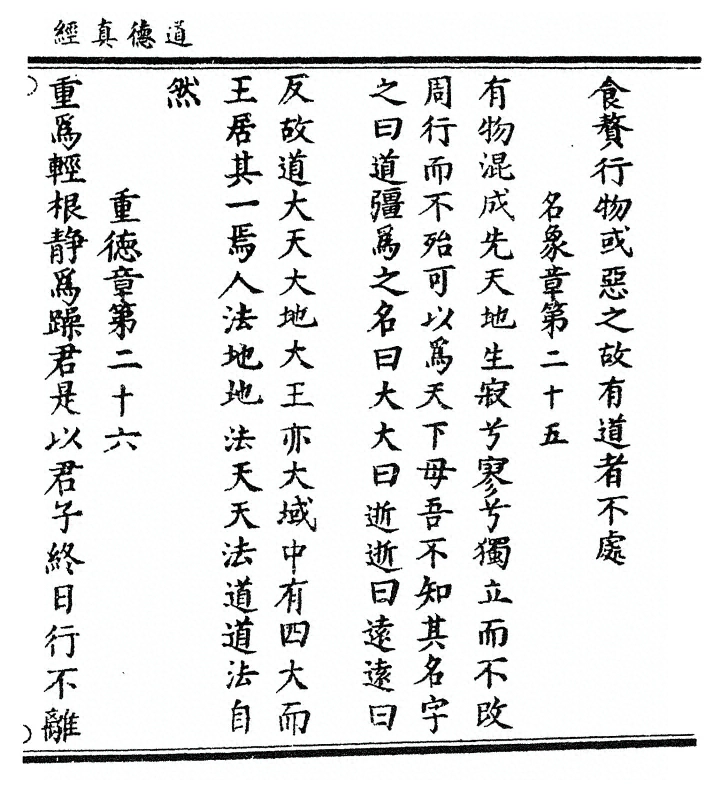 道德真經
食贅行物或惡之故有道者不處
名象章第二十五
有物混成先天地生寂兮寥兮獨立而不改
周行而不殆可以爲天下母吾不知其名字
之曰道彊爲之名曰大大曰逝逝曰遠遠曰
反故道大天大地大王亦大域中有四大而
王居其一焉人法地地法天天法道道法自
然
重德章第二十六
重爲輕根靜爲躁君是以君子終日行不離